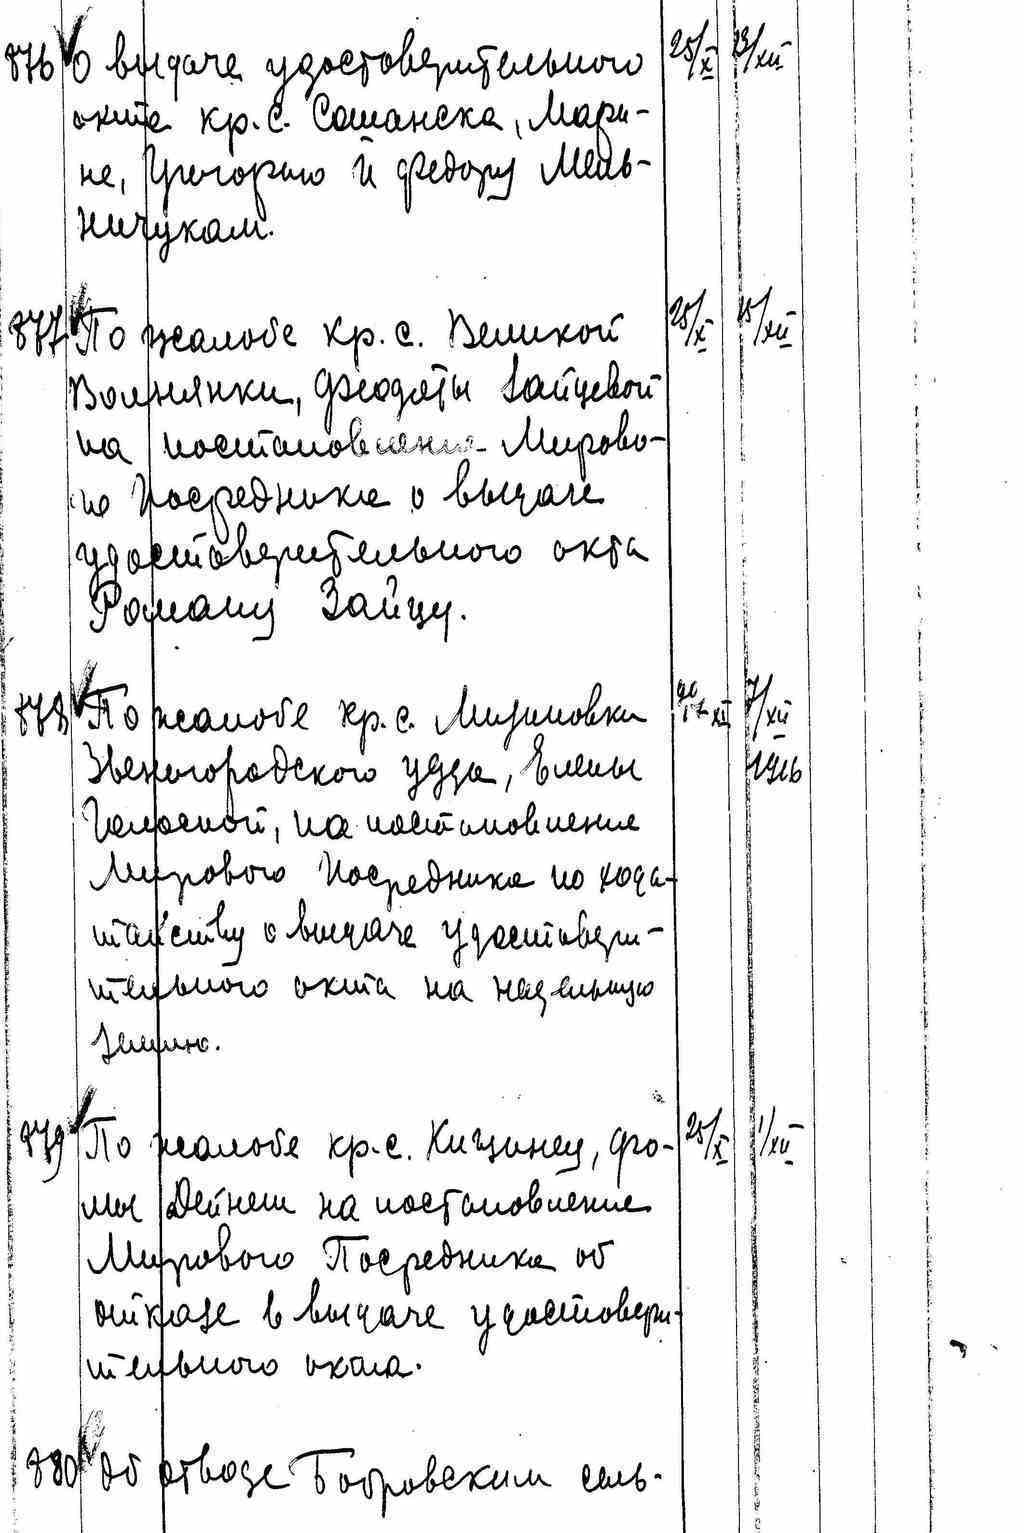 876 О выдаче удостоверительного 25/X 23/XII
акта кр. с. Сошанска, Мари-
не, Григорию и Федору Мель-
ничукам.
877 По жалобе кр. с. Великой 25/X 15/XII
Волнянки, Феодоты Зайцевой
на постановление Мирово-
го Посредника о выдаче
удостоверительного акта
Роману Зайцу.
878 По жалобе кр. с. Мизиновки XII 7/XII
Звенигородского уезда, Елены 1916
на постановление
Мирового Посредника по хода-
тайству о выдаче удостовери-
тельного акта на надельную
землю.
879 По жалобе кр. с. Кищинец, Фо- 25/X 1/XII
мы Дейнеш на постановление
Мирового Посредника об
отказе в выдаче удостовери-
тельного акта.
880 Об отводе Бобровским сель-